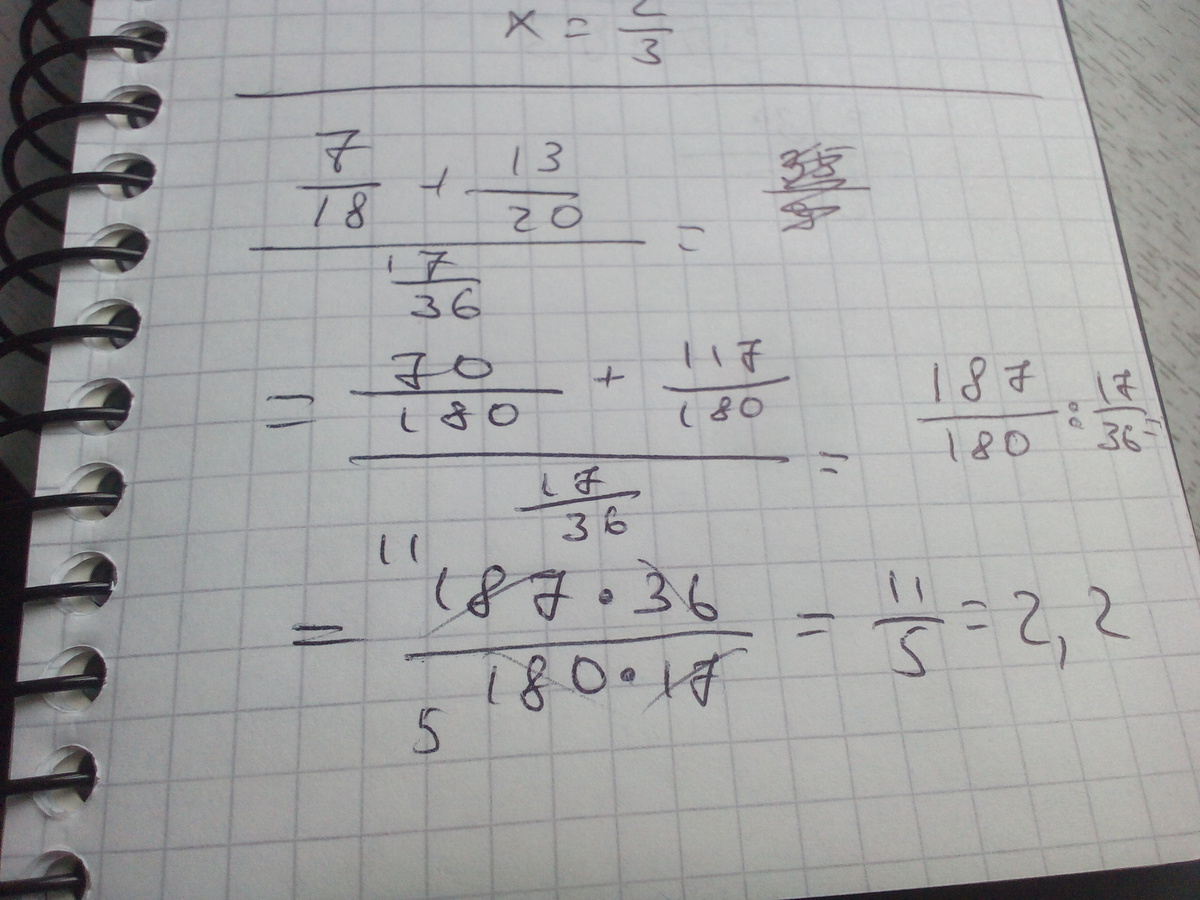 x = 2/3
(7/18 + 13/20) / (17/36) =
= (70/180 + 117/180) / (17/36) = 187/180 : 17/36 =
11
= (187 · 36) / (180 · 17) = 11/5 = 2,2
5